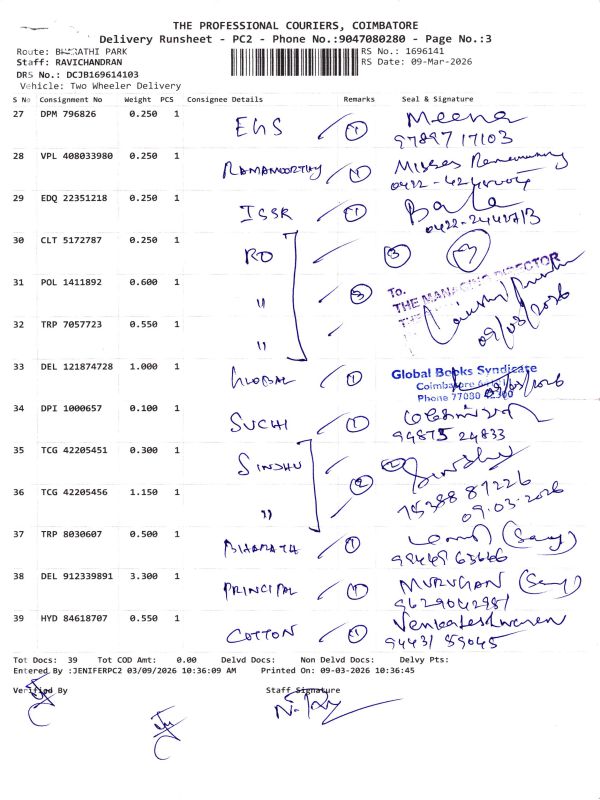 THE PROFESSIONAL COURIERS, COIMBATORE
Delivery Runsheet - PC2 - Phone No.:9047080280 - Page No.:3
Route: BHARATHI PARK RS No.: 1696141
Staff: RAVICHANDRAN RS Date: 09-Mar-2026
DRS No.: DCJB169614103
Vehicle: Two Wheeler Delivery
S No Consignment No Weight PCS Consignee Details Remarks Seal & Signature
27 DPM 796826 0.250 1 EGS 1 Meena
97897 17103
28 VPL 408033980 0.250 1 RAMAMOORTHY 1
0422-
29 EDQ 22351218 0.250 1 ISSR 1 Bala
0422-
30 CLT 5172787 0.250 1 RO 3 3
31 POL 1411892 0.600 1 " 3 To.
THE MANAGING DIRECTOR
32 TRP 7057723 0.550 1 " 09/03/2026
33 DEL 121874728 1.000 1 GLOBAL 1 Global Books Syndicate
Coimbatore
Phone 77080 42300
34 DPI 1000657 0.100 1 SUCHI 1
94875 24833
35 TCG 42205451 0.300 1 SINDHU 2 Sindhu
36 TCG 42205456 1.150 1 " 2 75388 87226
09-03-2026
37 TRP 8030607 0.500 1 BHARATH 1
38 DEL 912339891 3.300 1 PRINCIPAL 1 MURUGAN
9629042987
39 HYD 84618707 0.550 1 COTTON 1 Venkateshwaren
94431 59045
Tot Docs: 39 Tot COD Amt: 0.00 Delvd Docs: Non Delvd Docs: Delvy Pts:
Entered By :JENIFERPC2 03/09/2026 10:36:09 AM Printed On: 09-03-2026 10:36:45
Verified By Staff Signature